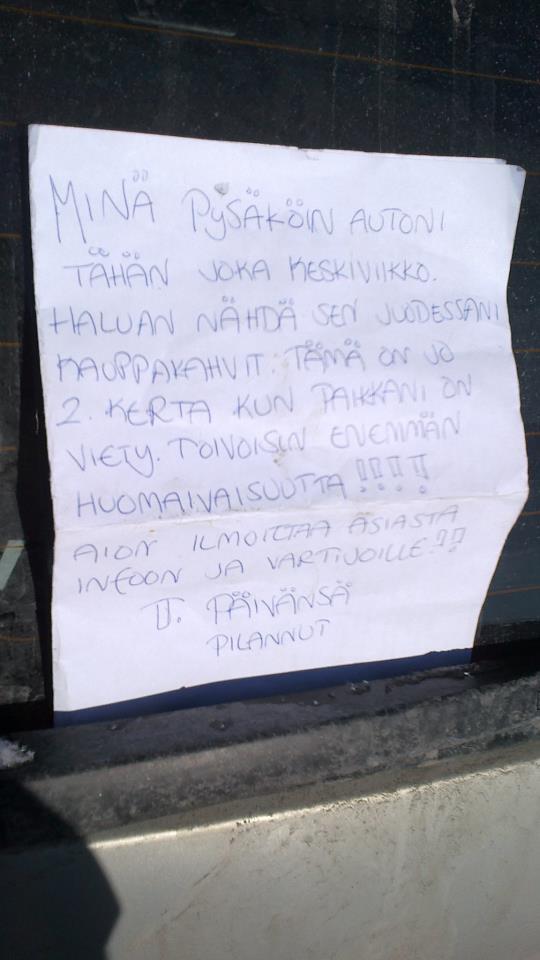 MINÄ PYSÄKÖIN AUTONI
TÄHÄN JOKA KESKIVIIKKO.
HALUAN NÄHDÄ SEN JUODESSANI
KAUPPAKAHVIT. TÄMÄ ON JO
2. KERTA KUN PAIKKANI ON
VIETY. TOIVOISIN ENEMMÄN
HUOMAIVAISUUTTA!!!!
AION ILMOITTAA ASIASTA
INFOON JA VARTIJOILLE!!!
T. PÄIVÄNSÄ
PILANNUT